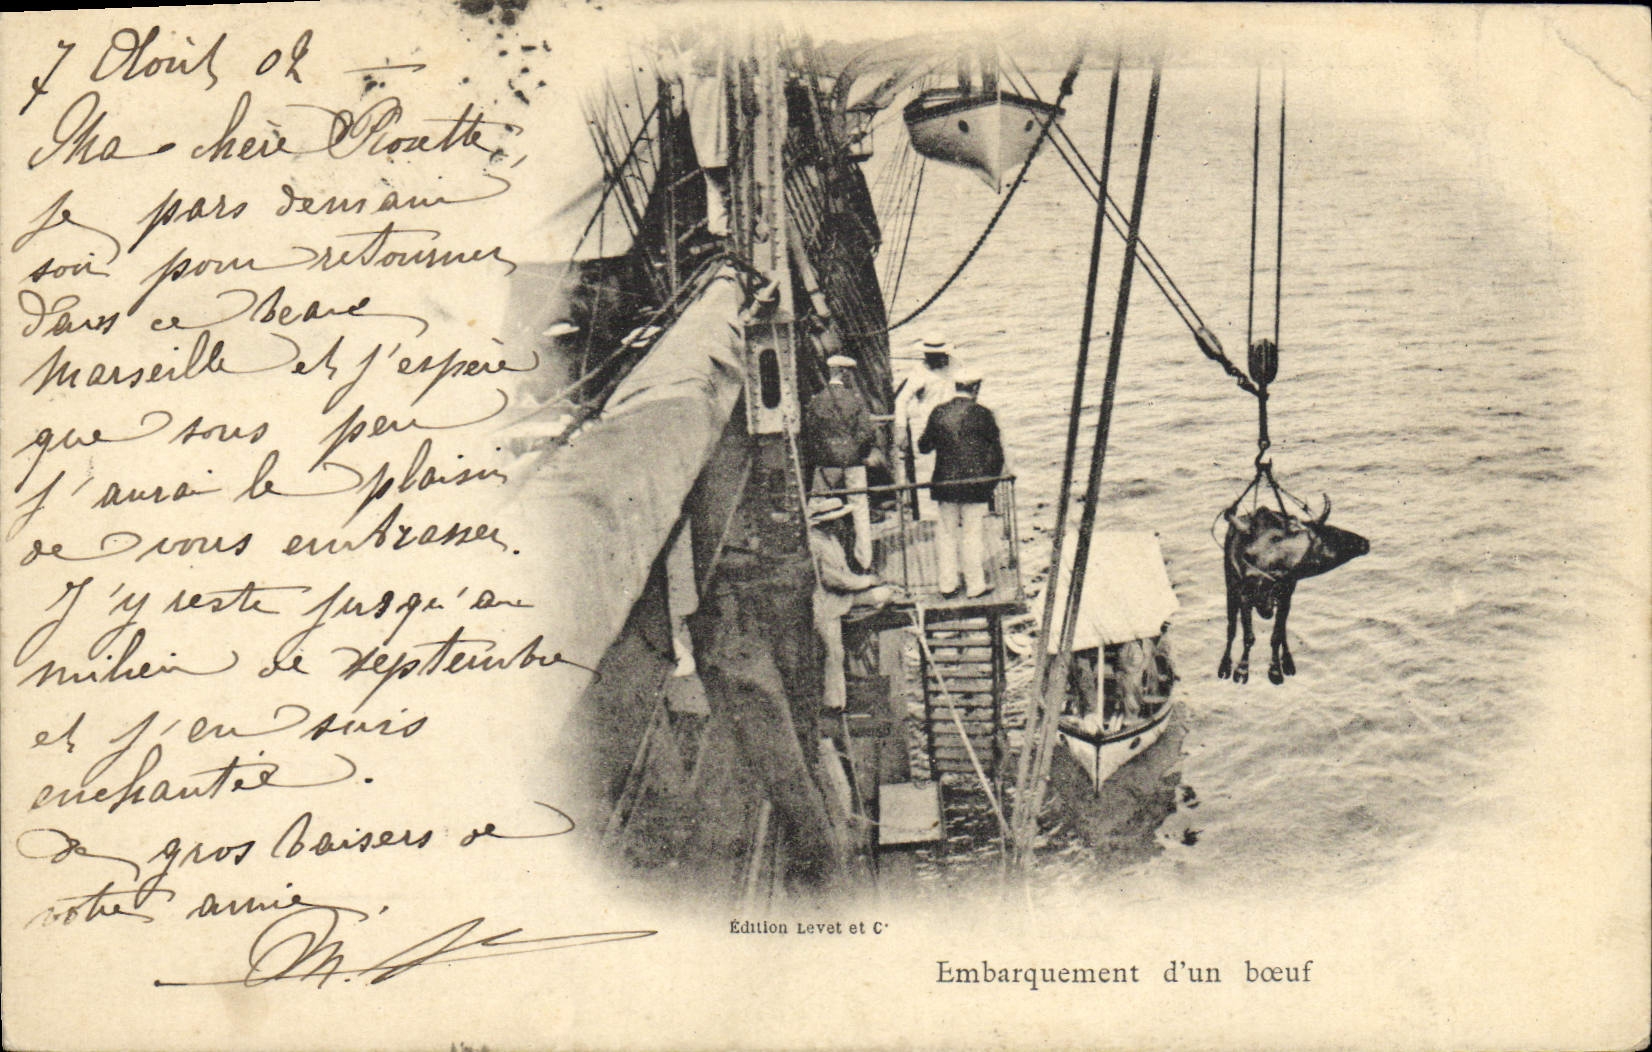 7 Août 02 —
Ma chère Rosette,
je pars demain
soir pour retourner
dans ce beau
Marseille et j'espère
que sous peu
j'aurai le plaisir
de vous embrasser.
J'y reste jusqu'au
milieu de septembre
et j'en suis
enchantée.
de gros baisers de
votre amie.
M.
Édition Levet et Cie
Embarquement d'un bœuf